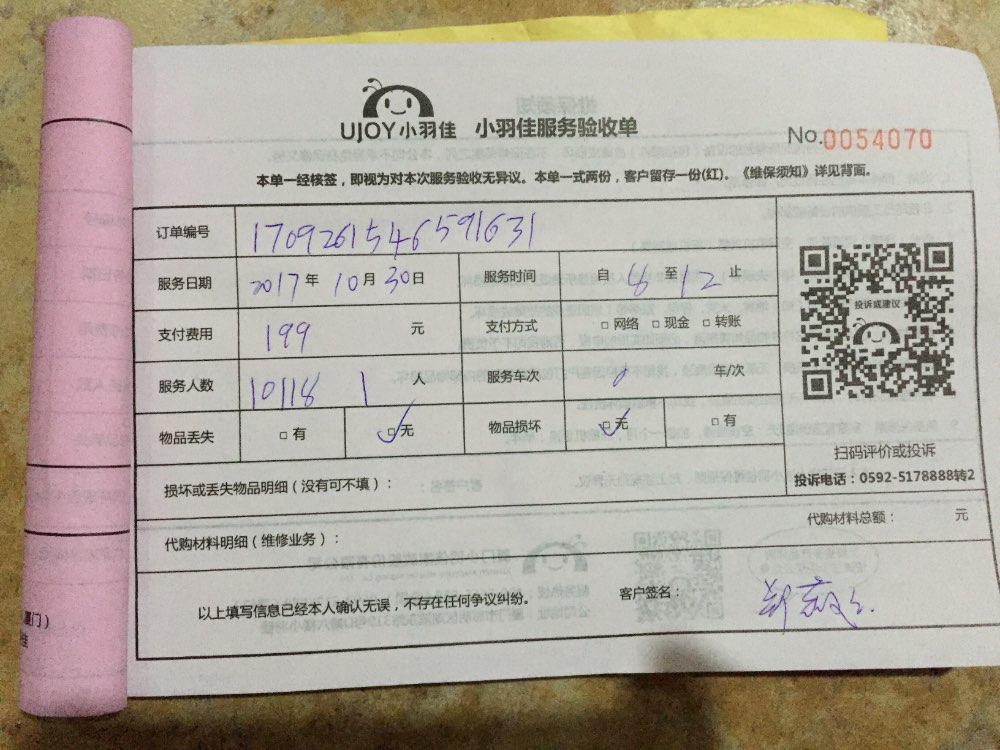 UJOY小羽佳 小羽佳服务验收单
No.0054070
本单一经核签，即视为对本次服务验收无异议。本单一式两份，客户留存一份(红)。《维保须知》详见背面。
订单编号 1709261546591631
服务日期 2017年10月30日 服务时间 自8至12止
支付费用 199 元 支付方式 □网络 □现金 □转账
服务人数 10118 1 人 服务车次 0 年/次
物品丢失 □有 ☑无 物品损坏 ☑无 □有
投诉或建议
扫码评价或投诉
投诉电话：0592-5178888转2
损坏或丢失物品明细（没有可不填）：
代购材料总额： 元
代购材料明细（维修业务）：
以上填写信息已经本人确认无误，不存在任何争议纠纷。 客户签名：
厦门）
佳